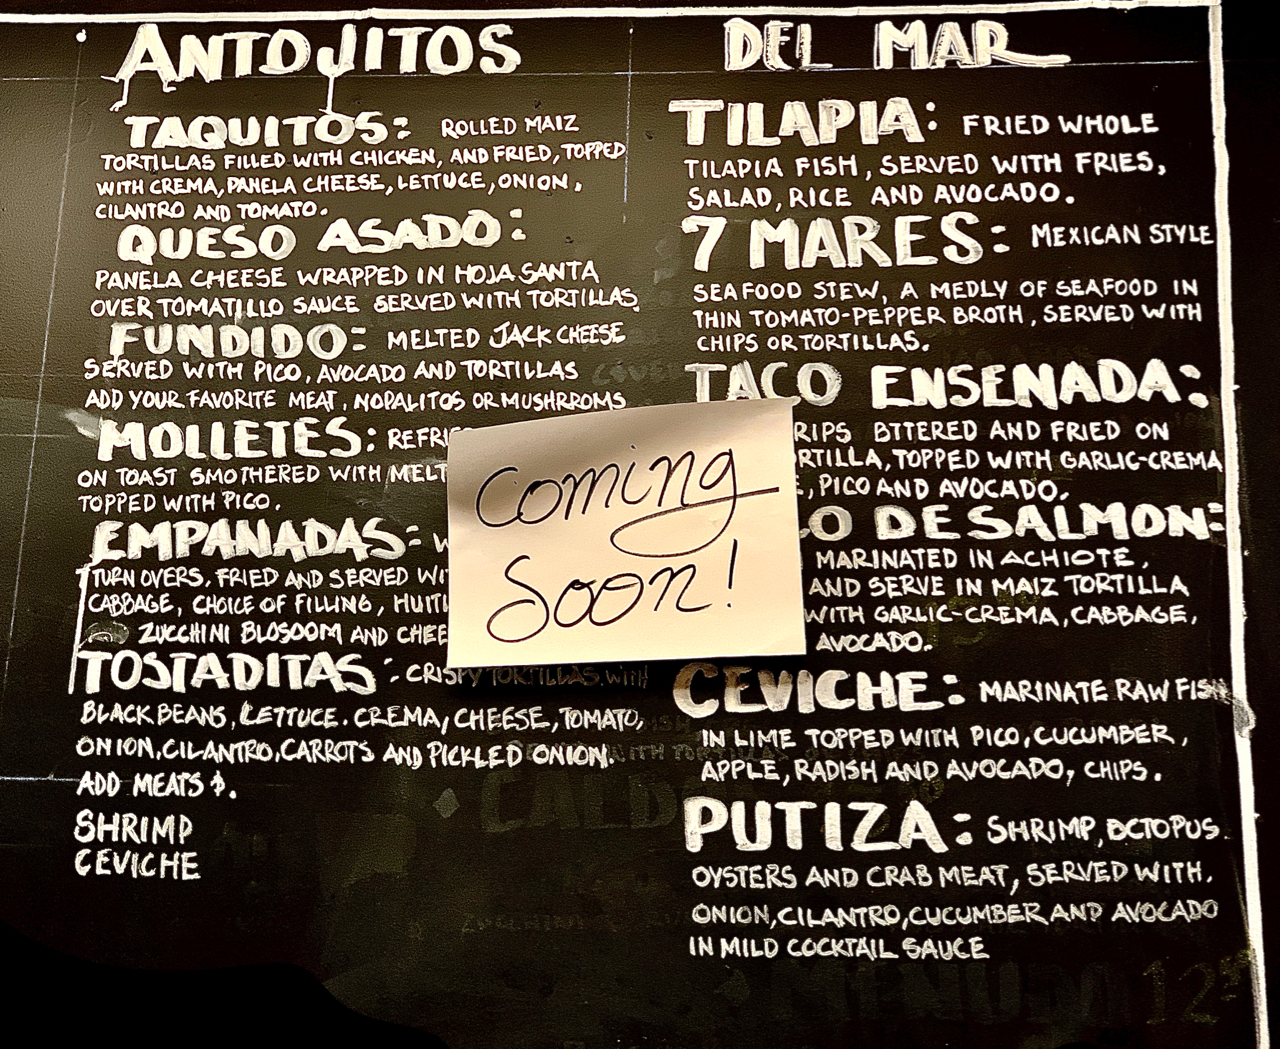 ANTOJITOS
TAQUITOS: ROLLED MAIZ
TORTILLAS FILLED WITH CHICKEN, AND FRIED, TOPPED
WITH CREMA, PANELA CHEESE, LETTUCE, ONION,
CILANTRO AND TOMATO.
QUESO ASADO:
PANELA CHEESE WRAPPED IN HOJA SANTA
OVER TOMATILLO SAUCE SERVED WITH TORTILLAS.
FUNDIDO: MELTED JACK CHEESE
SERVED WITH PICO, AVOCADO AND TORTILLAS
ADD YOUR FAVORITE MEAT, NOPALITOS OR MUSHRROMS
MOLLETES: REFRI
ON TOAST SMOTHERED WITH MELT
TOPPED WITH PICO.
EMPANADAS:
TURN OVERS, FRIED AND SERVED WI
CABBAGE, CHOICE OF FILLING, HUITL
ZUCCHINI BLOSOOM AND CHEE
TOSTADITAS: CRISPY TORTILLAS WITH
BLACK BEANS, LETTUCE. CREMA, CHEESE, TOMATO,
ONION, CILANTRO, CARROTS AND PICKLED ONION.
ADD MEATS $.
SHRIMP
CEVICHE
Coming
Soon!
DEL MAR
TILAPIA: FRIED WHOLE
TILAPIA FISH, SERVED WITH FRIES,
SALAD, RICE AND AVOCADO.
7 MARES: MEXICAN STYLE
SEAFOOD STEW, A MEDLY OF SEAFOOD IN
THIN TOMATO-PEPPER BROTH, SERVED WITH
CHIPS OR TORTILLAS.
TACO ENSENADA:
RIPS BTTERED AND FRIED ON
RTILLA, TOPPED WITH GARLIC-CREMA
, PICO AND AVOCADO.
O DE SALMON:
MARINATED IN ACHIOTE,
AND SERVE IN MAIZ TORTILLA
WITH GARLIC-CREMA, CABBAGE,
AVOCADO.
CEVICHE: MARINATE RAW FISH
IN LIME TOPPED WITH PICO, CUCUMBER,
APPLE, RADISH AND AVOCADO, CHIPS.
PUTIZA: SHRIMP, OCTOPUS.
OYSTERS AND CRAB MEAT, SERVED WITH.
ONION, CILANTRO, CUCUMBER AND AVOCADO
IN MILD COCKTAIL SAUCE